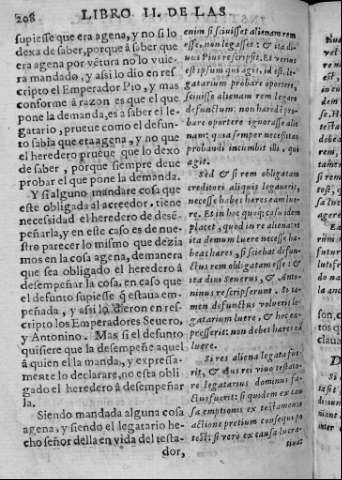 208
LIBRO II. DE LAS
supiesse que era agena, y no si lo
dexa de saber, porque à saber que
era agena por vẽtura no lo vuie-
ra mandado, y assi lo dio en res
cripto el Emperador Pio, y mas
conforme à razon es que el que
pone la demanda, es a saber el le-
gatario, prueue como el defun-
to sabia que era agena, y no que
el heredero prueue que lo dexo
de saber, porque siempre deue
probar el que pone la demanda.
Y si alguno mandare cosa que
este obligada al acreedor, tiene
necessidad el heredero de desẽ-
peñarla, y en este caso es de nue-
stro parecer lo mismo que dezia
mos en la cosa agena, de manera
que sea obligado el heredero à
desempeñar la cosa, en caso que
el defunto supiesse q̃ estaua em-
peñada, y assi lo dieron en res-
cripto los Emperadores Seuero,
y Antonino. Mas si el defunto
quisiere que la desempeñe aquel
à quien el la manda, y expressa-
mente lo declarare, no esta obli
gado el heredero à desempeñar
la.
Siendo mandada alguna cosa
agena, y siendo el legatario he-
cho señor della en vida del testa-
dor,
enim si sciuisset alienam rem
esse, non legasset: & ita di-
uus Pius rescripsit. Et verius
est ipsum qui agit, id est, le-
gatarium probare oportere,
scisse alienam rem legare
defunctum: non hæredẽ pro-
bare oportere ignorasse alie
nam: quia semper necessitas
probandi incumbit illi, qui
agit.
Sed & si rem obligatam
creditori aliquis legauerit,
necesse habet hæres eam lue-
re. Et in hoc quoq; casu idem
placet, quod in re aliena: vt
ita demum luere necesse ha-
beat hæres, si sciebat defun-
ctus rem obligatam esse: &
ita diui Seuerus, & Anto-
ninus rescripserunt. Si ta-
men defunctus voluerit le-
gatarium luere, & hoc ex-
presserit: non debet hæres eã
luere.
Si res aliena legata fue-
rit, & eius rei viuo testato-
re legatarius dominus fa-
ctus fuerit: si quidem ex cau
sa emptionis ex testamento
actione pretium consequi po-
test: si verò ex causa lucra-
tiua: